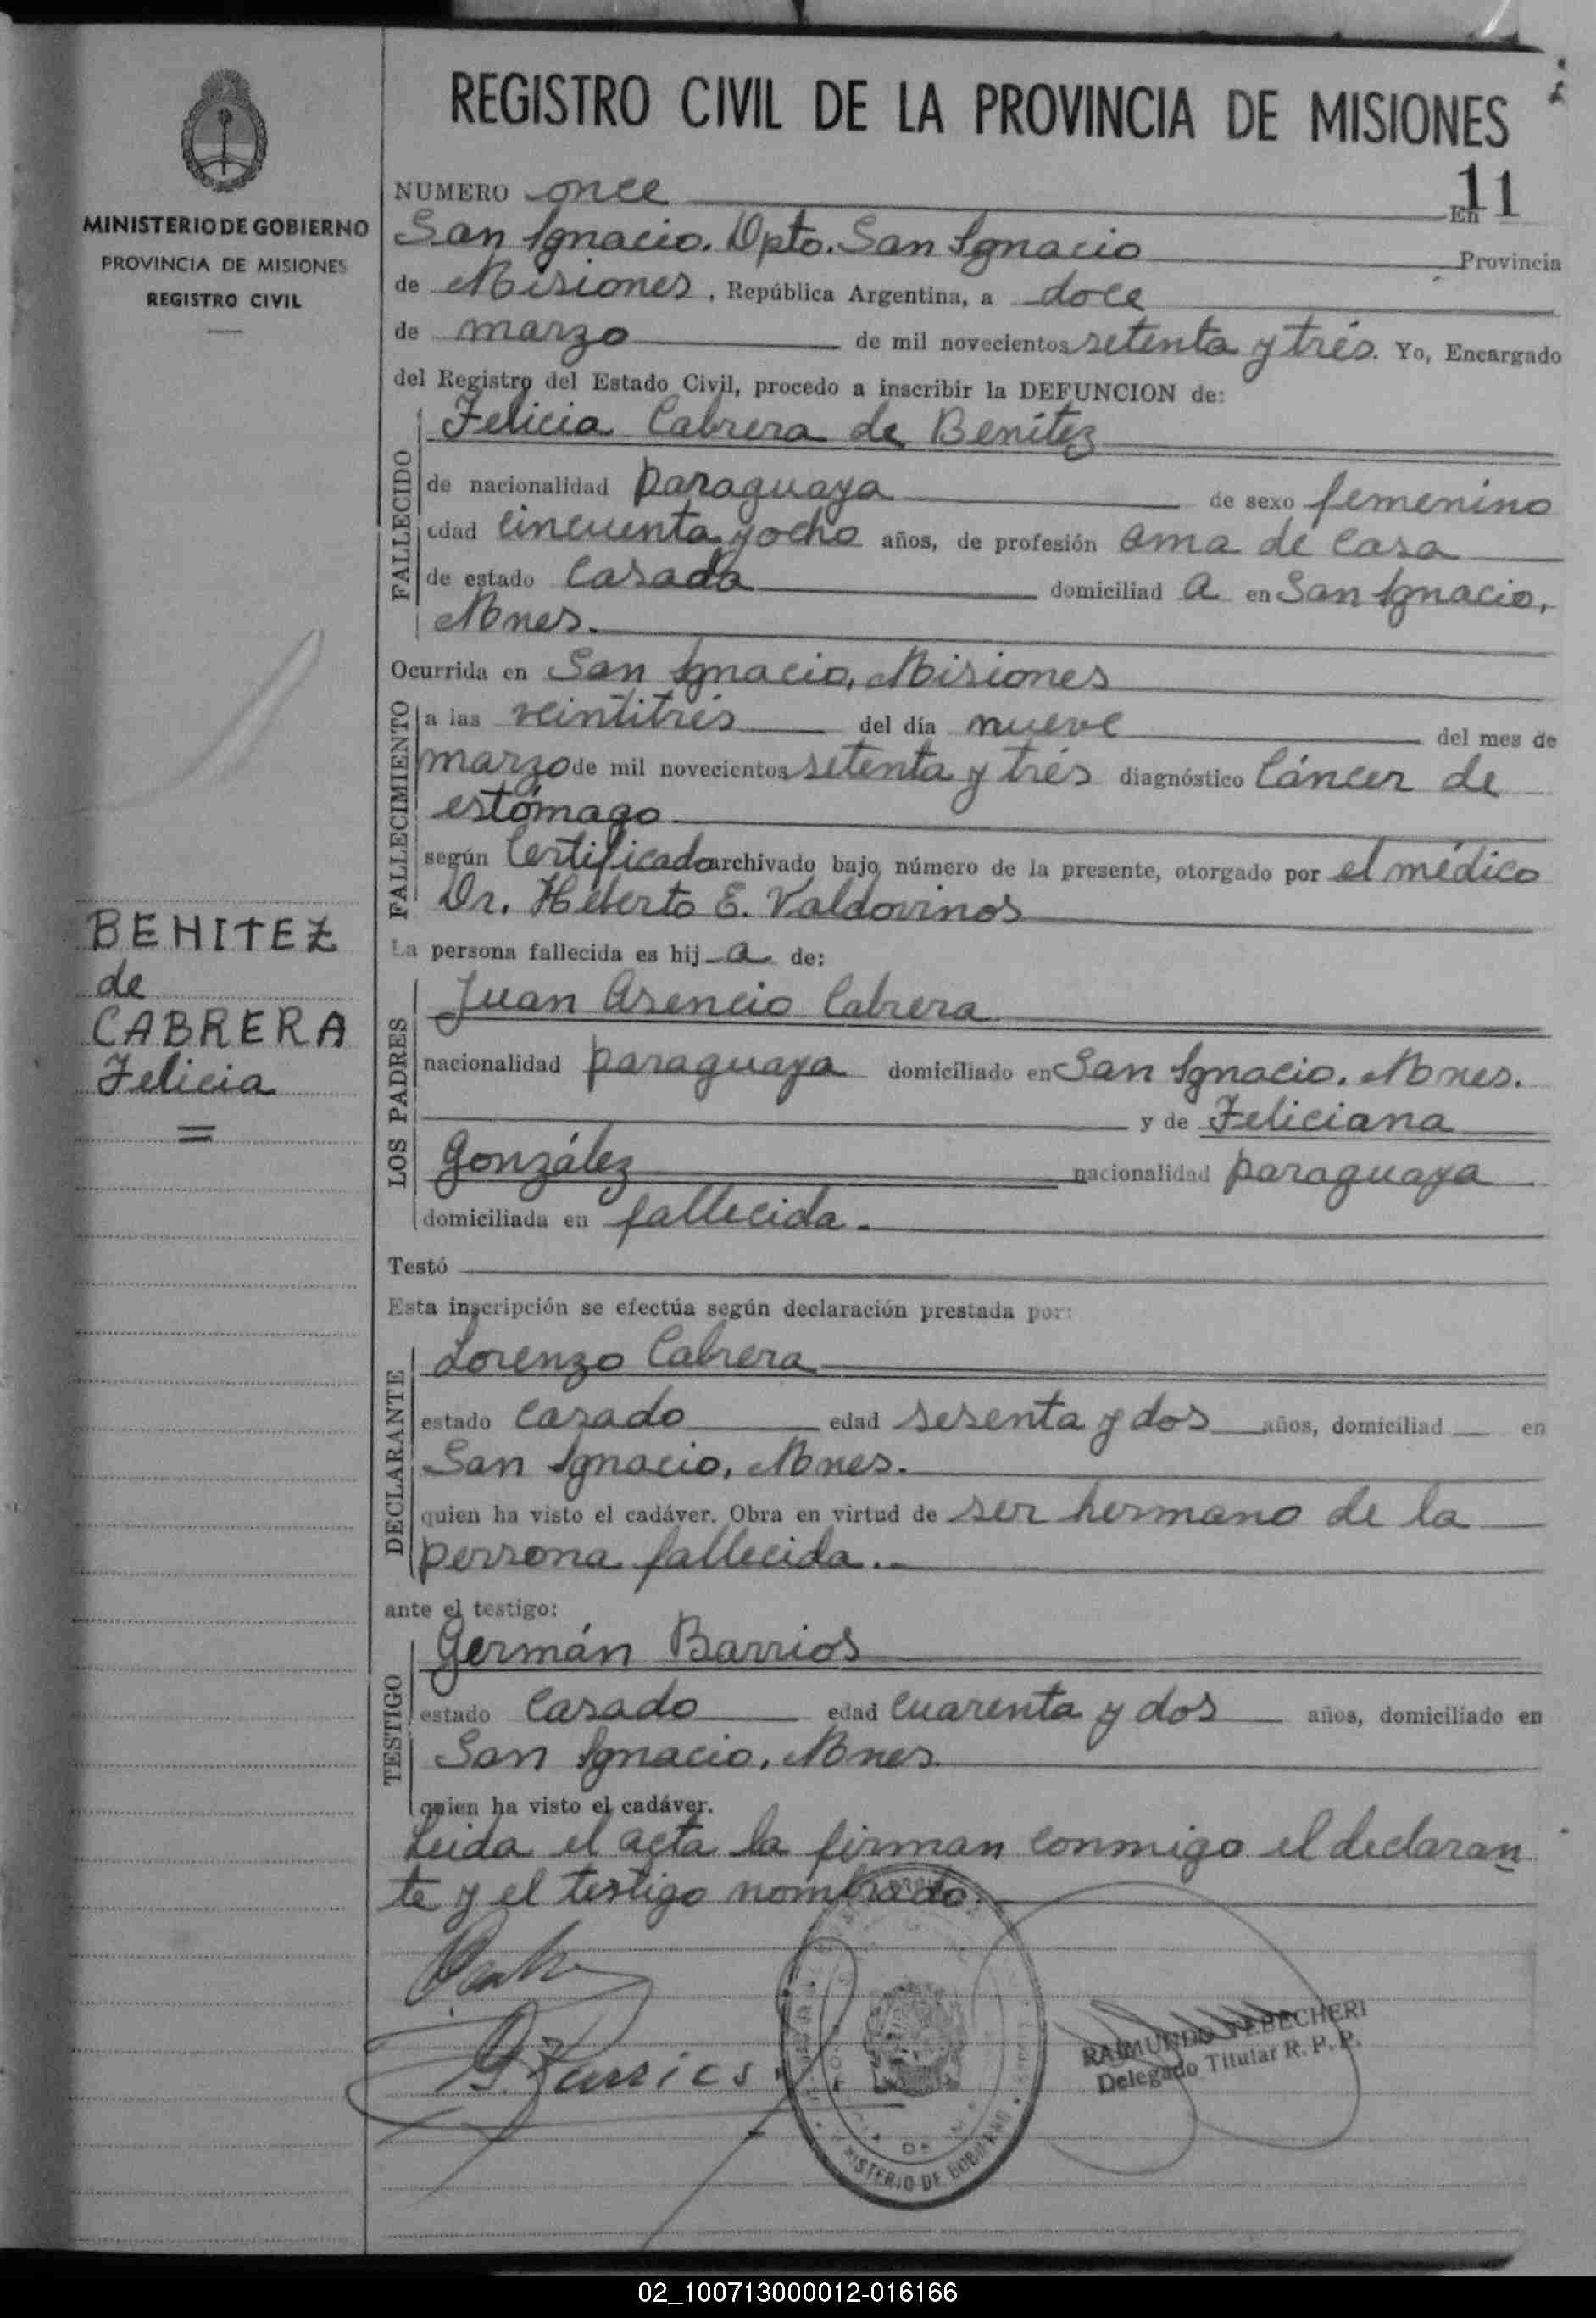 REGISTRO CIVIL DE LA PROVINCIA DE MISIONES
MINISTERIO DE GOBIERNO
PROVINCIA DE MISIONES
REGISTRO CIVIL
NUMERO once 11 En
San Ignacio. Dpto. San Ignacio Provincia
de Misiones, República Argentina, a doce
de marzo de mil novecientos setenta y trés. Yo, Encargado
del Registro del Estado Civil, procedo a inscribir la DEFUNCION de:
FALLECIDO
Felicia Cabrera de Benítez
de nacionalidad paraguaya de sexo femenino
edad cincuenta y ocho años, de profesión ama de casa
de estado casada domiciliad a en San Ignacio,
Mnes.
Ocurrida en San Ignacio, Misiones
FALLECIMIENTO
a las veintitrés del día nueve del mes de
marzo de mil novecientos setenta y trés diagnóstico Cáncer de
estómago
según Certificado archivado bajo número de la presente, otorgado por el médico
Dr. Héberto E. Valdovinos
BENITEZ
de
CABRERA
Felicia
=
La persona fallecida es hij a de:
LOS PADRES
Juan Asencio Cabrera
nacionalidad paraguaya domiciliado en San Ignacio. Mnes.
y de Feliciana
González nacionalidad paraguaya
domiciliada en fallecida.
Testó
Esta inscripción se efectúa según declaración prestada por:
DECLARANTE
Lorenzo Cabrera
estado casado edad sesenta y dos años, domiciliad en
San Ignacio, Mnes.
quien ha visto el cadáver. Obra en virtud de ser hermano de la
persona fallecida.
ante el testigo:
TESTIGO
Germán Barrios
estado casado edad cuarenta y dos años, domiciliado en
San Ignacio, Mnes.
quien ha visto el cadáver.
Leida el acta la firman conmigo el declaran
te y el testigo nombrado.
G. Barrios.
MINISTERIO DE GOBIERNO
RAIMUNDO
Delegado Titular R. P. P.
02_100713000012-016166